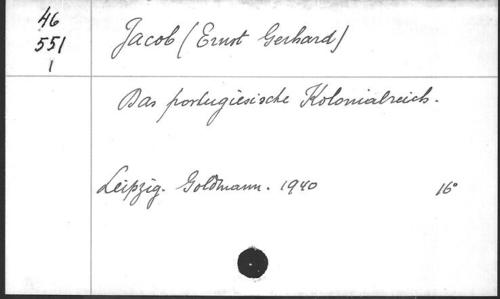 46
551
1
Jacob (Ernst Gerhard)
Das portugiesische Kolonialreich.
Leipzig. Goldmann. 1940 16°